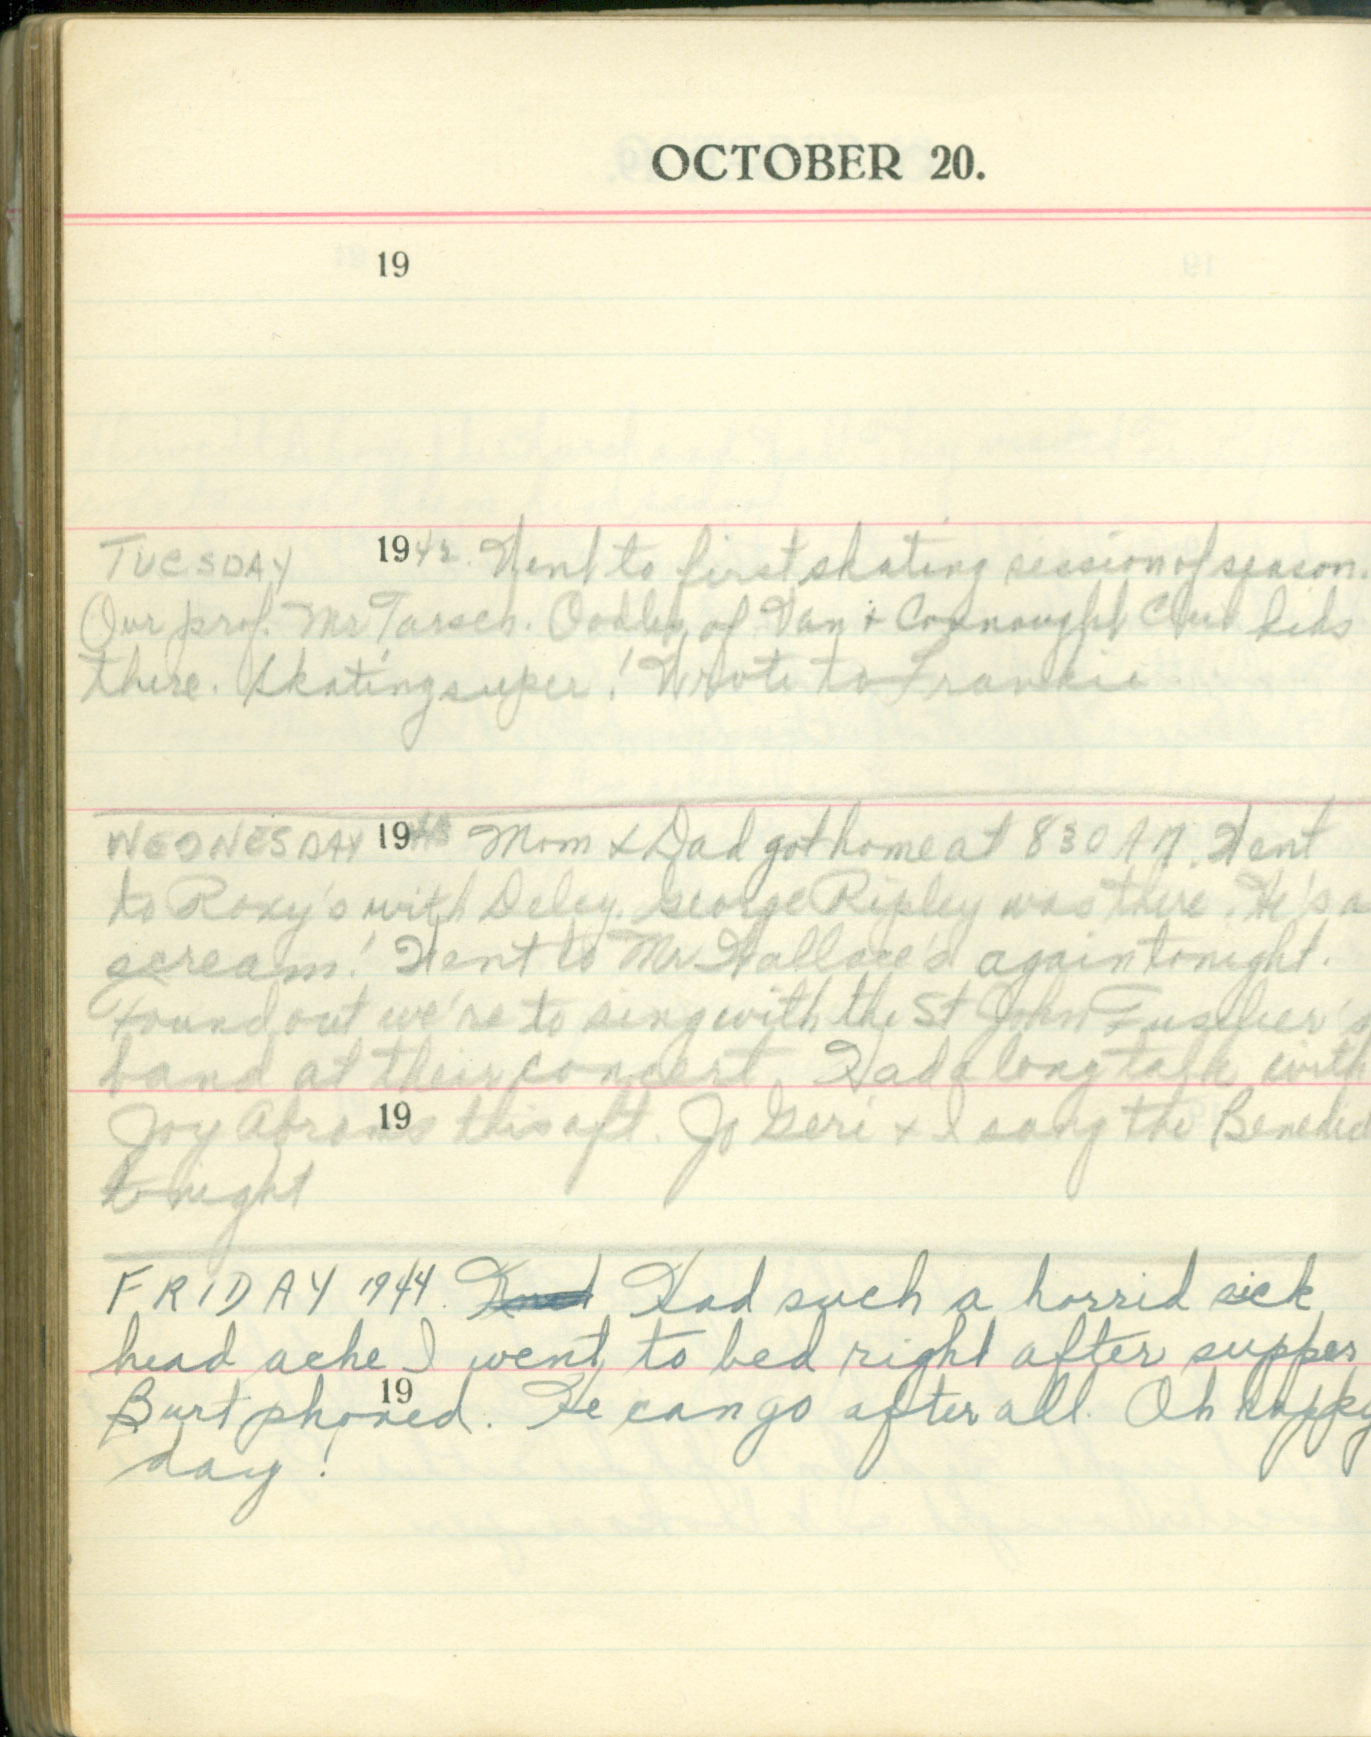 OCTOBER 20.
19
TUESDAY 1942. Went to first skating session of season.
Our prof. Mr Tarsch. Oodles of Van & Connaught Club kids
there. Skating super! Wrote to Frankie
WEDNESDAY 1943 Mom & Dad got home at 830 A M. Went
to Roxy's with Deley. George Ripley was there. He's a
scream! Went to Mr Wallace's again tonight.
Found out we're to sing with the St John Fusilier's
band at their concert. Had a long talk with
19
Joy Abrams this aft. Jo Geri & I sang the Bened
tonight
FRIDAY 1944. Had such a horrid sick
head ache I went to bed right after supper
19
Burt phoned. He can go after all. Oh happy
day!